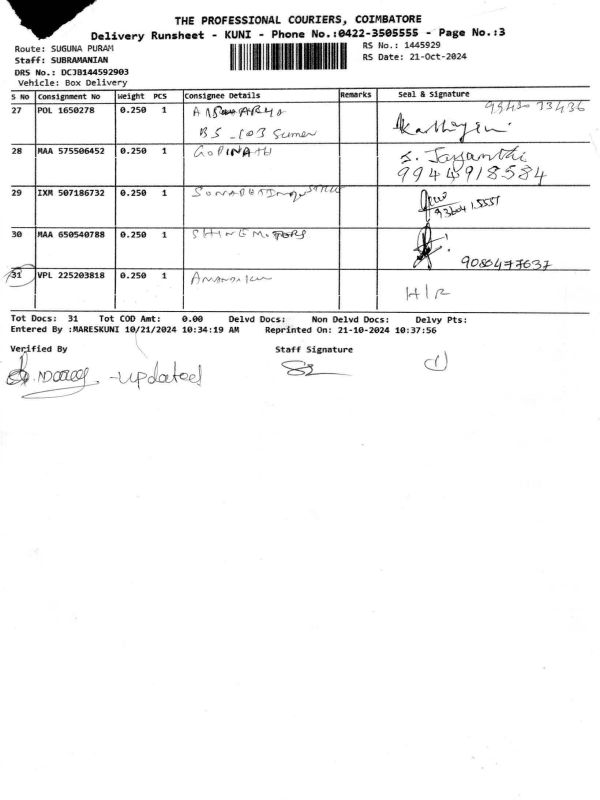 THE PROFESSIONAL COURIERS, COIMBATORE
Delivery Runsheet - KUNI - Phone No.:0422-3505555 - Page No.:3
Route: SUGUNA PURAM
RS No.: 1445929
Staff: SUBRAMANIAN
RS Date: 21-Oct-2024
DRS No.: DCJB144592903
Vehicle: Box Delivery
S No Consignment No Weight PCS Consignee Details Remarks Seal & Signature
27 POL 1650278 0.250 1
BS -103 Sumer
28 MAA 575506452 0.250 1 GOPINATH S. Jayanthi
9944918584
29 IXM 507186732 0.250 1
30 MAA 650540788 0.250 1 SHINE MOTORS
9080477637
31 VPL 225203818 0.250 1
H/R
Tot Docs: 31 Tot COD Amt: 0.00 Delvd Docs: Non Delvd Docs: Delvy Pts:
Entered By :MARESKUNI 10/21/2024 10:34:19 AM Reprinted On: 21-10-2024 10:37:56
Verified By Staff Signature
- updated
1